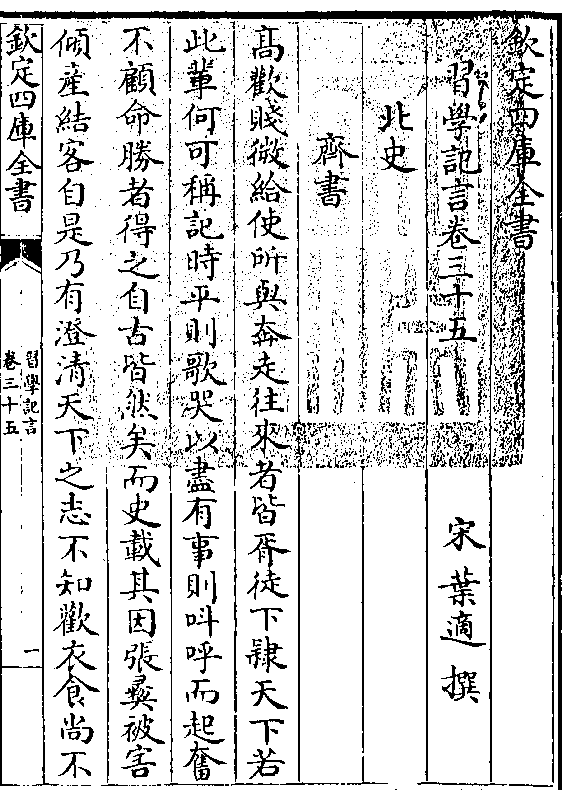 欽定四庫全書
習學記言卷三十五
宋 葉適 撰
北史
齊書
高歡賤微給使所與奔走往來者皆胥徒下隸天下若
此輩何可稱記時平則歌哭以盡有事則叫呼而起奮
不顧命勝者得之自古皆然矣而史載其因張彞被害
傾産結客自是乃有澄清天下之志不知歡衣食尚不
欽定四庫全書
習學記言
卷三十五
一